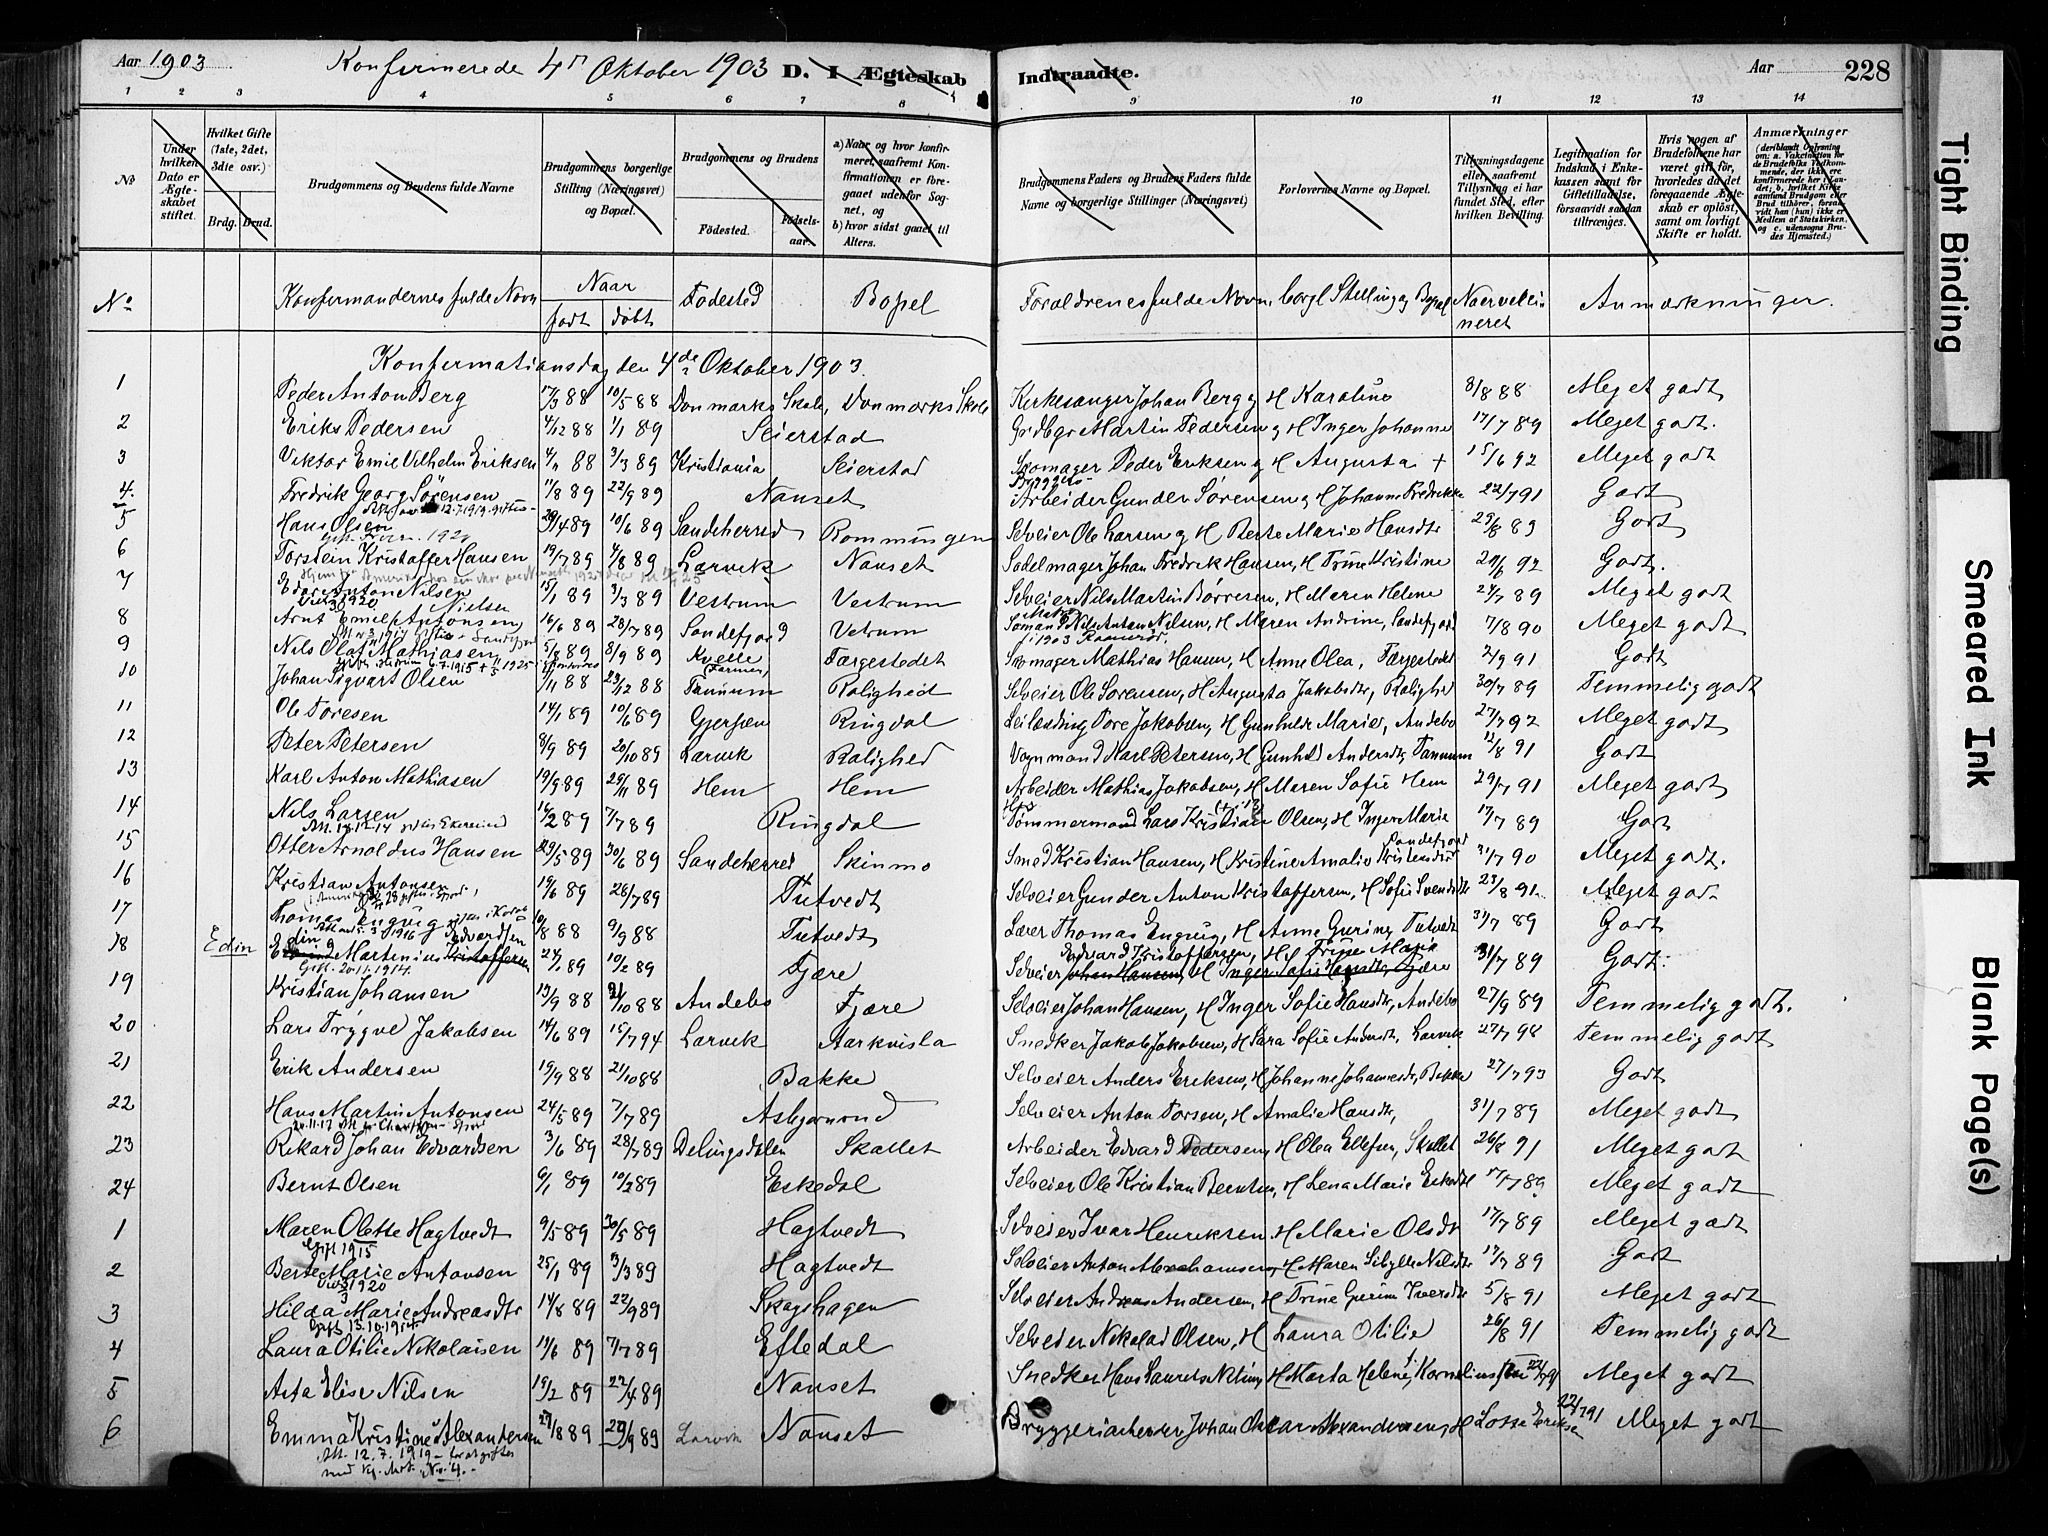 Aar 1903 Konfirmerede 4de Oktober 1903 D. I Ægteskab Indtraadte. Aar 228
1 2 3 4 5 6 7 8 9 10 11 12 13 14
No
Under hvilken Dato er Ægteskabet stiftet.
Hvilket Gifte (1ste, 2det, 3die osv.)
Brdg. Brud.
Brudgommens og Brudens fulde Navne
Brudgommens borgerlige Stilling (Næringsvei) og Bopæl.
Brudgommens og Brudens
Födested. Födselsaar.
a) Naar og hvor konfirmeret, saafremt Konfirmationen er foregaaet udenfor Sognet, og
b) hvor sidst gaaet til Alters.
Brudgommens Faders og Brudens Faders fulde Navne og borgerlige Stillinger (Næringsvei)
Forlovernes Navne og Bopæl.
Tillysningsdagene eller, saafremt Tillysning ei har fundet Sted, efter hvilken Bevilling.
Legitimation for Indskud i Enkekassen samt for Giftetilladelse, forsaavidt saadan tiltrænges.
Hvis nogen af Brudefolkene har været gift før, hvorledes da det foregaaende Ægteskab er opløst, samt om lovligt Skifte er holdt.
Anmærkninger (deriblandt Oplysning om: a. Vakcination for de Brudefolks Vedkommende, der ikke ere konfirmerede her i Landet; b. hvilket Kirkesamfund Brudgom eller Brud tilhører, forsaavidt han (hun) ikke er Medlem af Statskirken, og c. udensogns Brudes Hjemsted.)
No Konfirmandernes fulde Navn Naar født døbt Fødested Bopel Forældrenes fulde Navn, borgl Stilling og Bopæl Naar vaccineret Anmærkninger.
Konfirmationsdag den 4de Oktober 1903.
1 Peder Anton Berg 17/3 88 10/5 88 Danmarks Skole, Danmarks Skole Kirkesanger Johan Berg og H Karoline 8/8 88 Meget godt
2 Eriks Pedersen 4/12 88 1/1 89 Seierstad Grdbgr Martin Pedersen og H Inger Johanne 17/7 89 Meget godt.
3 Viktor Emil Vilhelm Eriksen 88 3/3 89 Kristiania Seierstad Skomager Peder Eriksen og H Augusta + 15/6 92 Meget godt
4. Fredrik Georg Sørensen 11/8 89 22/9 89 Nanset Arbeider Gunder Sørensen og H Johanne Fredrikke 22/7 91 Godt
5 Hans Olsen 29/4 89 10/6 89 Sandeherred Rommungen Selveier Ole Larsen og H Berte Marie Hansdtr 29/8 89 Godt
6 Torstein Kristoffer Hansen 19/7 89 4/8 89 Larvik Nanset Sadelmager Johan Fredrik Hansen, H Trine Kristine 21/6 92 Godt.
7 Edor Anton Nilsen 13/1 89 3/3 89 Vestrum Vestrum Selveier Nils Martin Børresen, H Maren Helene 27/7 89 Meget godt
Viet 1920
8 Arnt Emil Antonsen Nielsen 16/6 89 28/7 89 Sandefjord Vetrum Sømand Nils Anton Nilsen, H Maren Andrine, Sandefjord 7/8 90 Meget godt
9 Nils Olaf Mathiasen 5/8 89 8/9 89 Kvelle Færgestedet Skomager Mathias Hansen, H Anne Olea, Færgestedet 2/9 91 Godt
10 Johan Sigvart Olsen /11 88 23/12 88 Tanum Rolighed Selveier Ole Sørensen, H Augusta Jakobsdtr, Rolighed 30/7 89 Temmelig godt
11 Ole Toresen 14/1 89 10/6 89 Gjerpen Ringdal Leilænding Tore Jakobsen, H Gunhild Marie, Andebo 27/7 92 Meget godt
12 Peter Petersen 8/9 89 20/10 89 Larvik Rolighed Vognmand Karl Petersen, H Gunhild Andersdtr, Tanum 12/8 91 Godt
13 Karl Anton Mathiasen 19/9 89 29/11 89 Hem Hem Arbeider Mathias Jakobsen, H Maren Sofie Hem 29/7 91 Meget godt
14 Nils Larsen 16/2 89 7/7 89 Ringdal Tømmermand Lars Kristian Olsen, H Inger Marie 17/7 89 Godt
15 Otter Arnoldus Hansen 29/5 89 30/6 89 Sandeherred Skinmo Smed Kristian Hansen, H Kristine Amalie Kristensdtr Sandefjord 31/7 90 Meget godt.
16 Kristian Antonsen 19/6 89 26/7 89 Tutvedt Selveier Gunder Anton Kristoffersen, H Sofie Svendsdtr 23/8 91 Meget godt
17 Thomas Engrug 10/8 88 9/9 88 Tutvedt Lærer Thomas Engrug, H Anne Gurine, Tutvedt 31/7 89 Godt
18 Edin Edin Martinius Edvardsen Kristoffersen 27/1 89 10/2 89 Fjære Selveier Edvard Kristoffersen, H Trine Marie Johan Hansen, H Inger Sofie Hansdtr, Fjære 31/7 89 Godt.
Gift. 20.11.1914.
19 Kristian Johansen 13/9 88 21/10 88 Andebo Fjære Selveier Johan Hansen, H Inger Sofie Hansdtr, Andebo 27/9 89 Temmelig godt.
20 Lars Trygve Jakobsen 14/6 89 15/7 94 Larvik Aarkvisla Snedker Jakob Jakobsen, H Sara Sofie Andersdt, Larvik 27/7 98 Temmelig godt
21 Erik Andersen 19/9 88 21/10 88 Bakke Selveier Anders Eriksen, H Johanne Johannesdtr, Bakke 27/7 93 Godt
22 Hans Martin Antonsen 24/5 89 7/7 89 Asbjørnrød Selveier Anton Torsen, H Amalie Hansdtr, 31/7 89 Meget godt
23 Rikard Johan Edvardsen 3/6 89 28/7 89 Delingsdalen Skallet Arbeider Edvard Pedersen, H Olea Ellefsen, Skallet 26/8 91 Meget godt
24 Bernt Olsen 6/1 89 10/2 89 Eskedal Selveier Ole Kristian Berntsen, H Lena Marie 17/7 89 Meget godt
1 Maren Olette Hagtvedt 9/5 89 30/5 89 Hagtvedt Selveier Ivar Henriksen H Marie Olsdtr 17/7 89 Meget godt
Gift 1915
2 Berte Marie Antonsen 25/1 89 3/3 89 Hagtvedt Selveier Anton Abrahamsen, H Maren Sibylle Nilsdtr 17/7 89 Godt
Viet 1920
3 Hilda Marie Andreasdtr 14/8 89 22/9 89 Skogshagen Selveier Andreas Andersen, H Trine Gurine Iversdtr 5/8 91 Meget godt
Gift 15.10.1914
4 Laura Otilie Nikolaisen 14/6 89 7/7 89 Eftedal Selveier Nikolai Olsen, H Laura Otilie 26/8 91 Temmelig godt
5 Asta Elise Nilsen 19/2 89 22/4 89 Nanset Snedker Hans Laurits Nilsen, H Marta Helene Kornelius 22/7 91 Meget godt
6 Emma Kristine Alexandersen 27/8 89 29/9 89 Larvik Nanset Bryggeriarbeider Johan Oskar Alexandersen, H Lovise Eriksen 22/7 91 Meget godt
Att. 12.7.1919 - forat giftes
med Kf. Mrk. No. 4. -
Tight Binding
Smeared Ink
Blank Page(s)